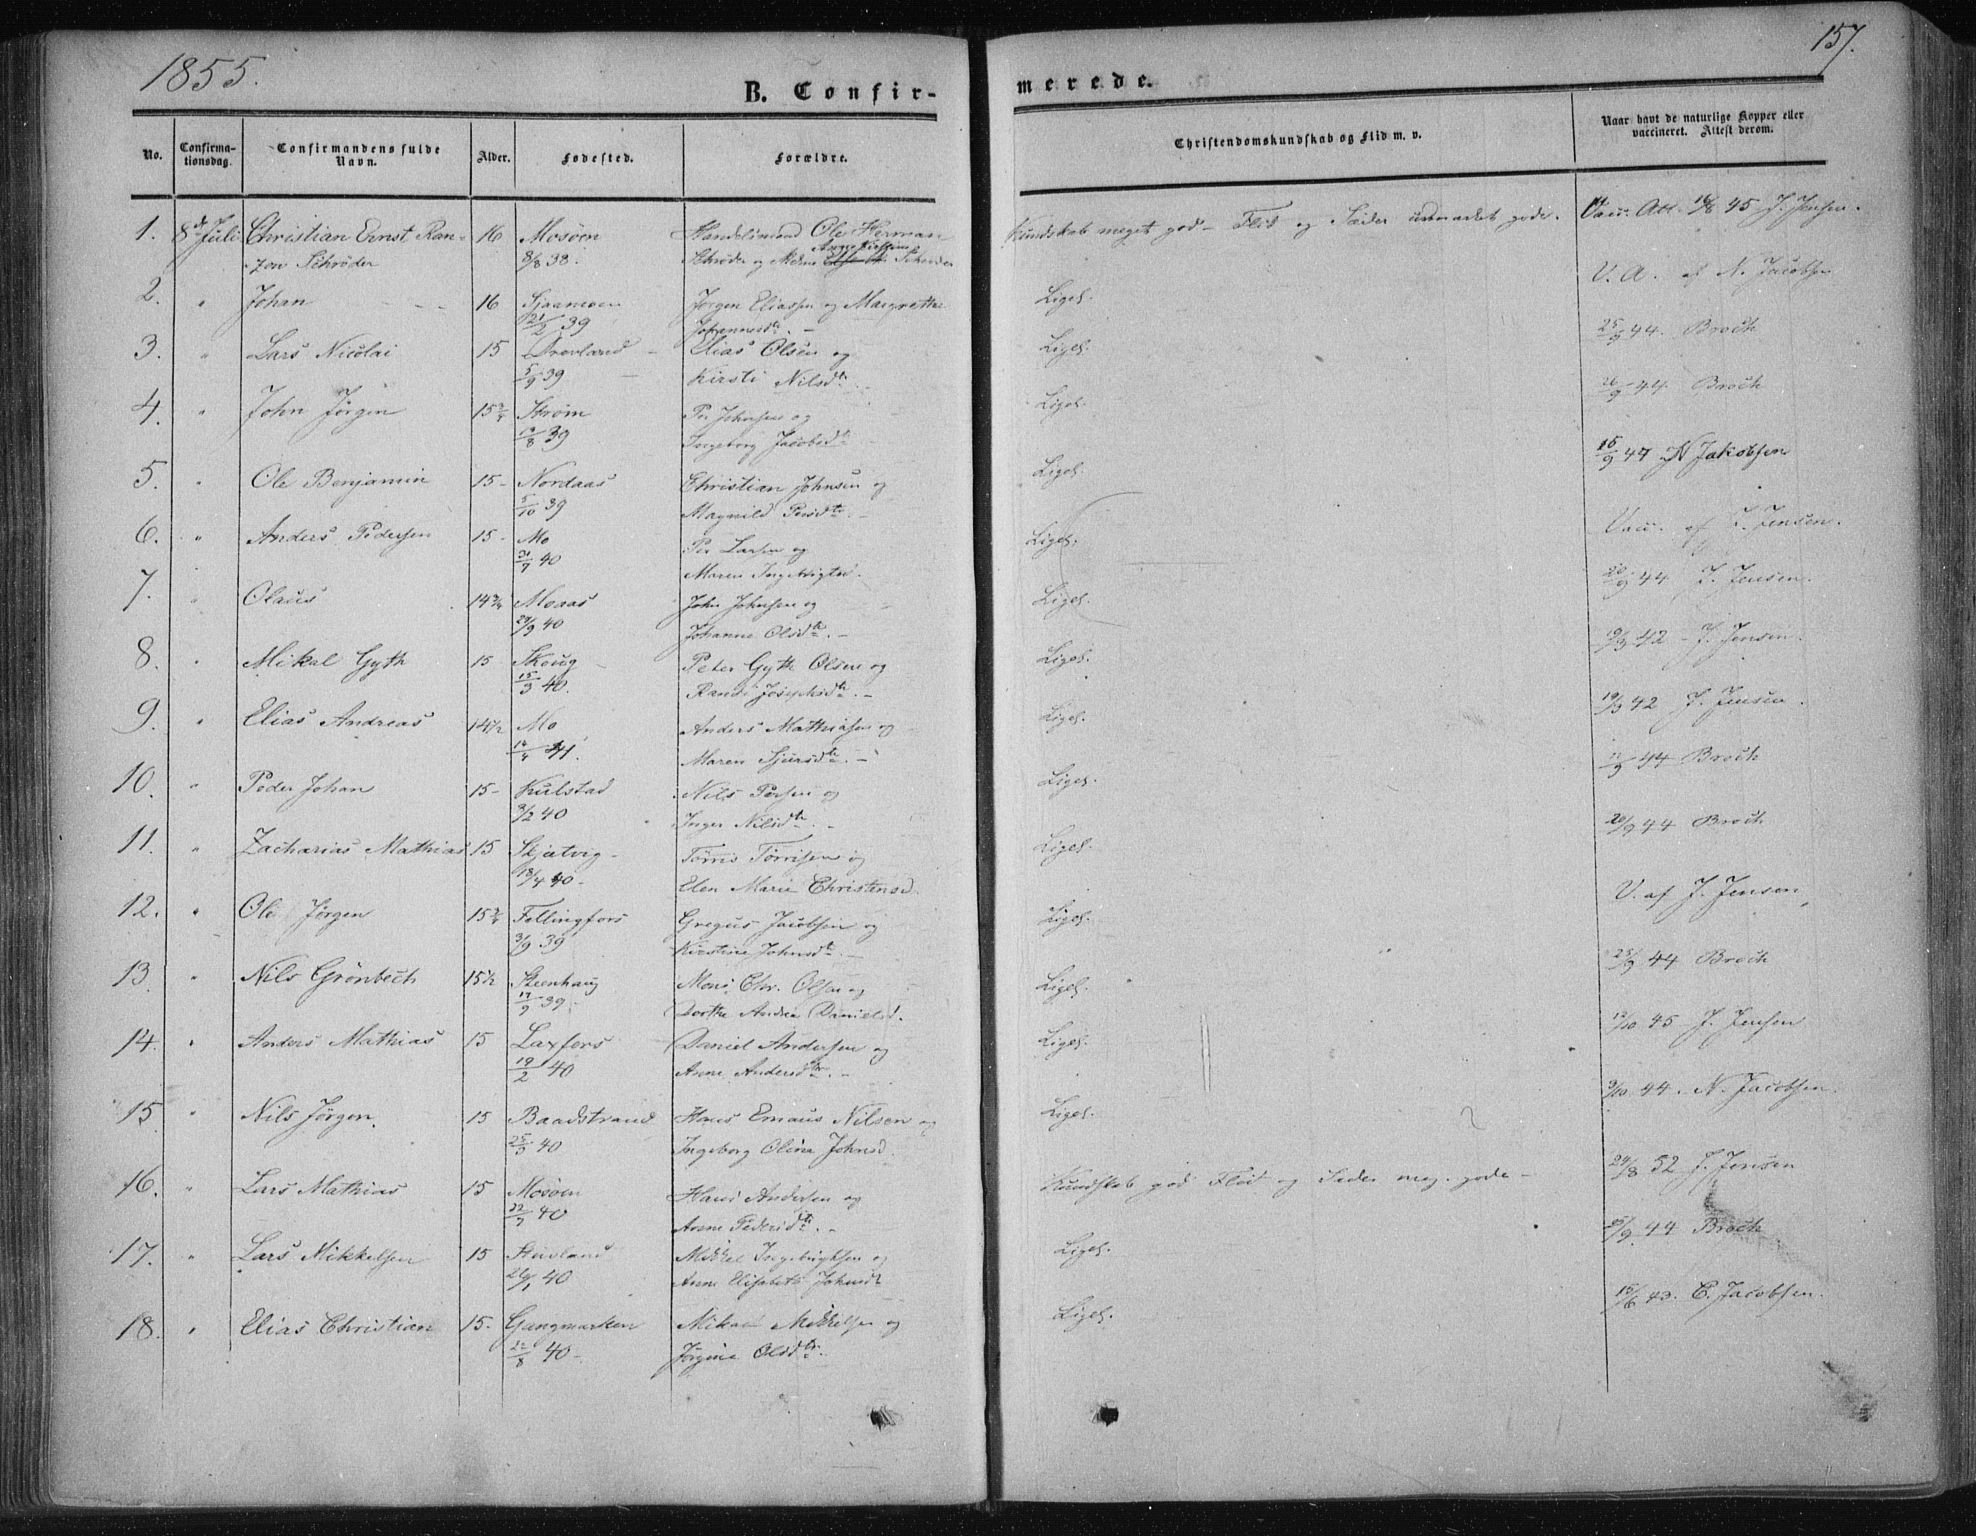 1855.
157.
B. Confir-
merede.
No.
Confirma-
tionsdag.
Confirmandens fulde
Navn.
Alder.
Fødested.
Forældre.
Christendomskundskab og Flid m. v.
Naar havt de naturlige Kopper eller
vaccineret. Attest derom.
1. 8d Juli Christian Ernst Ran- 16 Mosøen Handelsmand Ole Herman Kundskab meget god - Flid og Sæder udmærket gode. Vacc. Att. 16/8 45 J. Jensen.
zon Schrøder 8/8 38. Schrøder og Madme Schrøder
2. " Johan 16 21/2 39 Jørgen Eliassen og Margrethe Johannesdtr. - Liges. V. A. af N. Jacobsen
3. " Lars Nicolai 15 Drevland 5/9 39 Elias Olsen og Kirsti Nilsdtr. Liges. 25/9 44. Broch
4. " John Jørgen 15 3/4 Strøm Per Johnsen og Ingeborg Jacobsdtr Liges. 26/9 44 Broch
5. " Ole Benjamin 15 - Nordaas 5/10 39 Christian Johnsen og Magnild Persdtr. Liges. 15/9 47 N Jakobsen
6. " Anders Pedersen 15 - Mo 40 Per Larsen og Maren Ingebrigtsd. Liges. Vacc. af J. Jensen.
7. " Olaus 14 3/4 Moaas 29/9 40 John Johnsen og Johanne Olsdtr. - Liges. 20/9 44 J. Jensen.
8. " Mikal Gyth 15 Skoug 15/3 40. Peter Gyth Olsen og Randi Josephsdtr. - Liges. 19/3 42 - J. Jensen.
9. " Elias Andreas 14 1/2 Mo 41. Anders Mathiasen og Maren Sjursdtr. - Liges. 19/3 42 J. Jensen.
10. " Peder Johan 15 - Kulstad 3/2 40 Nils Persen og Inger Nilsdtr. - Liges. 44 Broch
11. " Zacharias Mathias 15 Skjatvig - 18/4 40 - Tørris Tørrisen og Elen Marie Christensd. Liges. 20/9 44 Broch
12. " Ole Jørgen 15 3/4 Fellingfors 3/9 39 Gregus Jacobsen og Kirstine Johnsdtr. - Liges. V. af J. Jensen
13. " Nils Grønbech 15 1/2 Steenhaug 17/9 39. Mons Chr. Olsen og Dorthe Andrea Danielsd. Liges. 25/9 44 Broch
14. " Anders Mathias 15 Laxfors 19/2 40 Daniel Andersen og Anne Andersdtr. - Liges. 45 J. Jensen
15. " Nils Jørgen. 15 Baadstrand 25/3 40 Hans Emaus Nilsen og Ingeborg Olina Johnsd. Liges. 3/10 44. N. Jacobsen.
16. " Lars Mathias 15 Mosøen 22/7 40 Hans Andersen og Anne Pedersdtr. - Kundskab god Flid og Sæder meg. gode - 24/8 52 J. Jensen
17. " Lars Mikkelsen 15 40 Mikkel Ingebrigtsen og Anne Elisabeth Johnsdt Liges. 44 Broch
18. " Elias Christian 15. Gangmarken 22/8 40 - Mikal Mikkelsen og Jørgine Olsdtr. Liges. 15/6 43. C. Jacobsen.